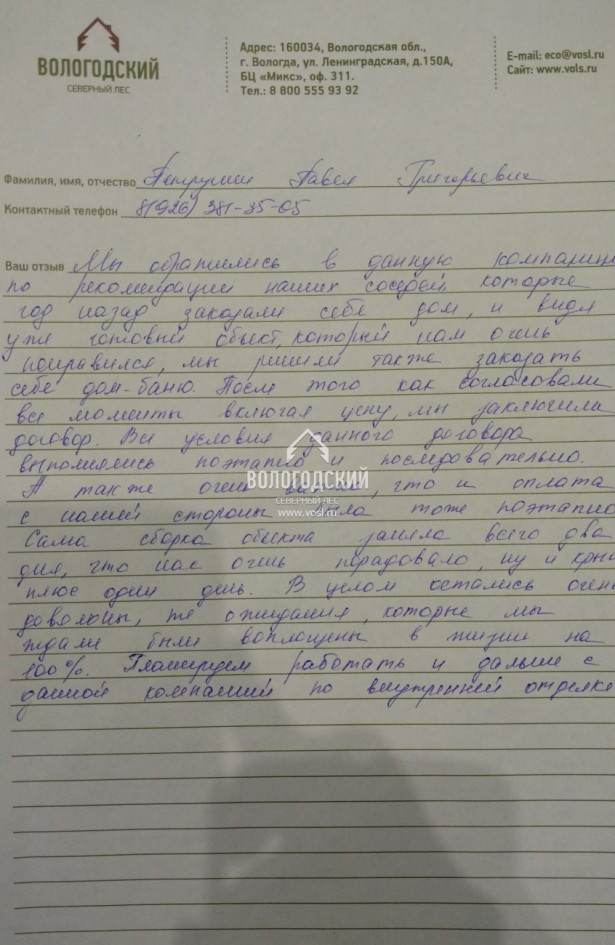 ВОЛОГОДСКИЙ
СЕВЕРНЫЙ ЛЕС
Адрес: 160034, Вологодская обл.,
г. Вологда, ул. Ленинградская, д.150А,
БЦ «Микс», оф. 311.
Тел.: 8 800 555 93 92
E-mail: eco@vosl.ru
Сайт: www.vols.ru
Фамилия, имя, отчество Павел Григорьевич
Контактный телефон 8(926) 381-35-05
Ваш отзыв Мы обратились в данную компанию
по рекомендации наших соседей которые
год назад заказали себе дом, и видя
уже готовый объект, который нам очень
понравился, мы решили также заказать
себе дом-баню. После того как согласовали
все моменты включая цену, мы заключили
договор. Все условия данного договора
выполнялись поэтапно и последовательно.
А также очень что и оплата
с нашей стороны была тоже поэтапно
Сама сборка объекта заняла всего два
дня, что нас очень порадовало, ну и крыша
плюс один день. В целом остались очень
довольны, те ожидания, которые мы
ждали были воплощены в жизни на
100%. Планируем работать и дальше с
данной компанией по внутренней отделке
ВОЛОГОДСКИЙ
СЕВЕРНЫЙ ЛЕС
www.vosl.ru